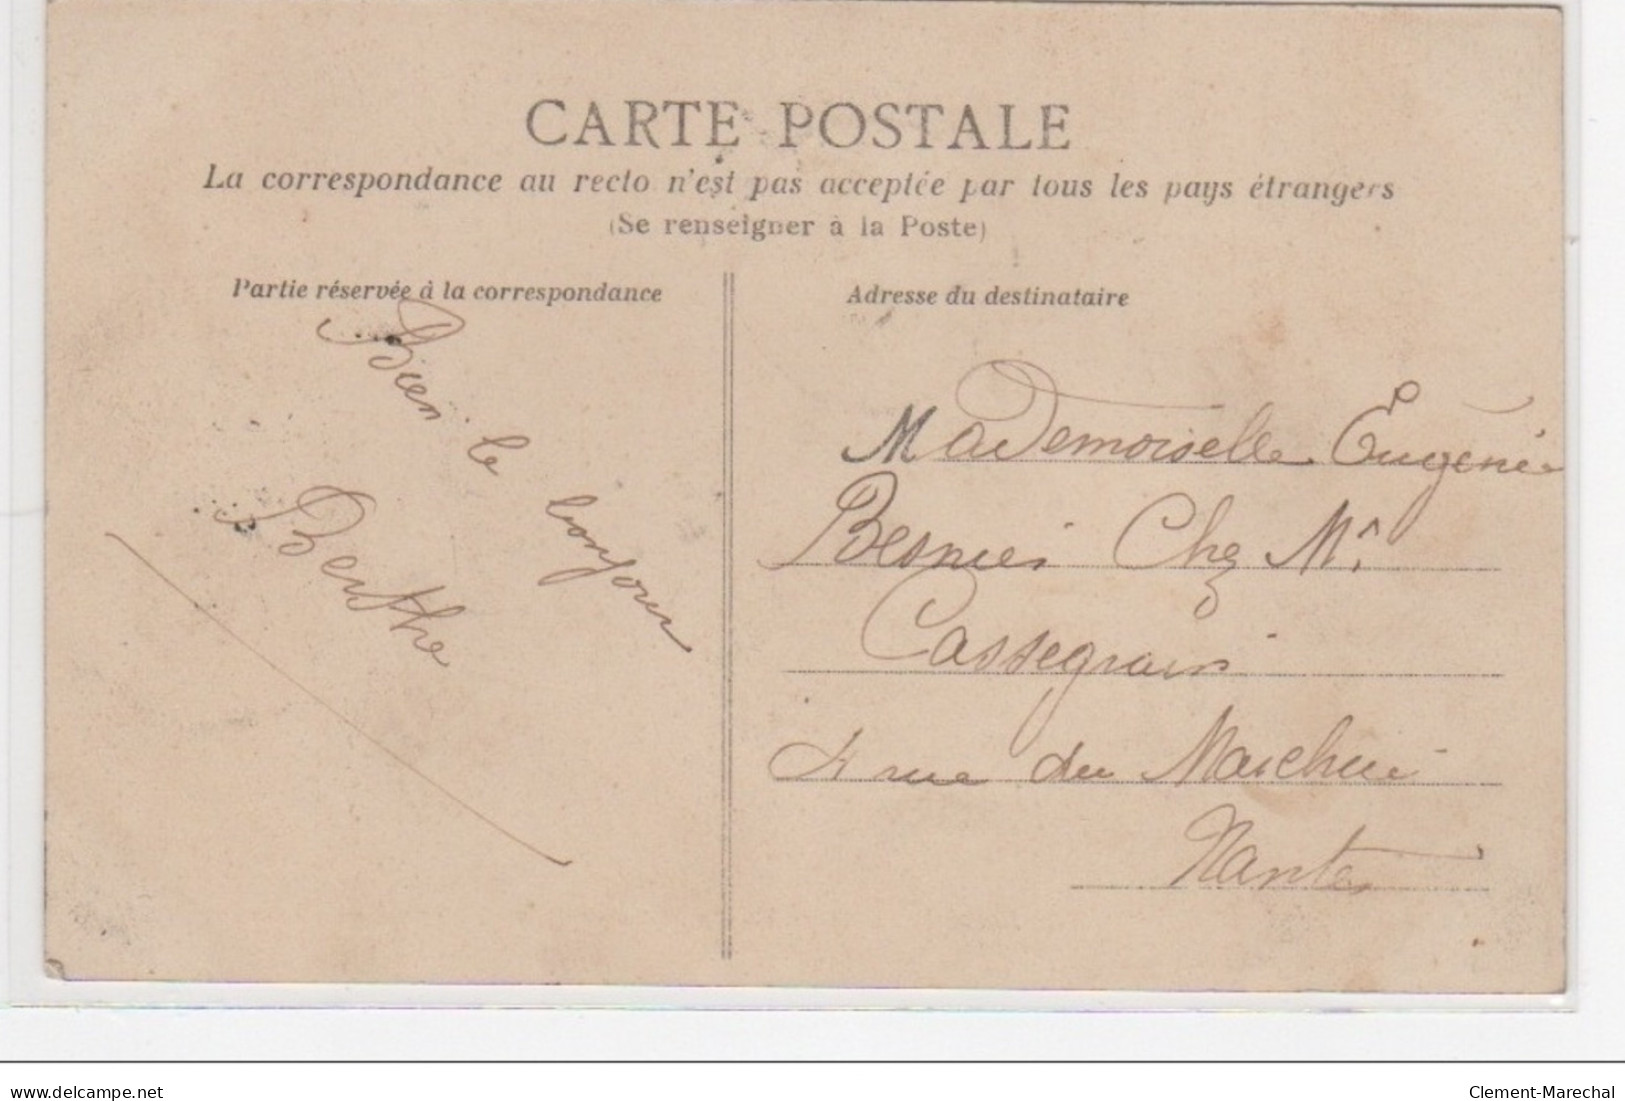 CARTE POSTALE
La correspondance au recto n'est pas acceptée par tous les pays étrangers
(Se renseigner à la Poste)
Partie réservée à la correspondance
Bien le bonjour
Berthe
Adresse du destinataire
Mademoiselle Eugénie
Besnier Chez Mr
Cassegrain
4 rue du
Nantes
delcampe.net
Clement-Marechal